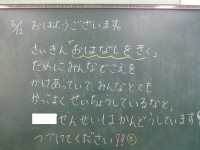 5/12 おはようございます。
さいきん おはなしをきく
ためにみんなでこえを
かけあっていて、みんなとても
かっこよく せいちょうしているなと、
せんせいは かんどうしています
つづけてください!!